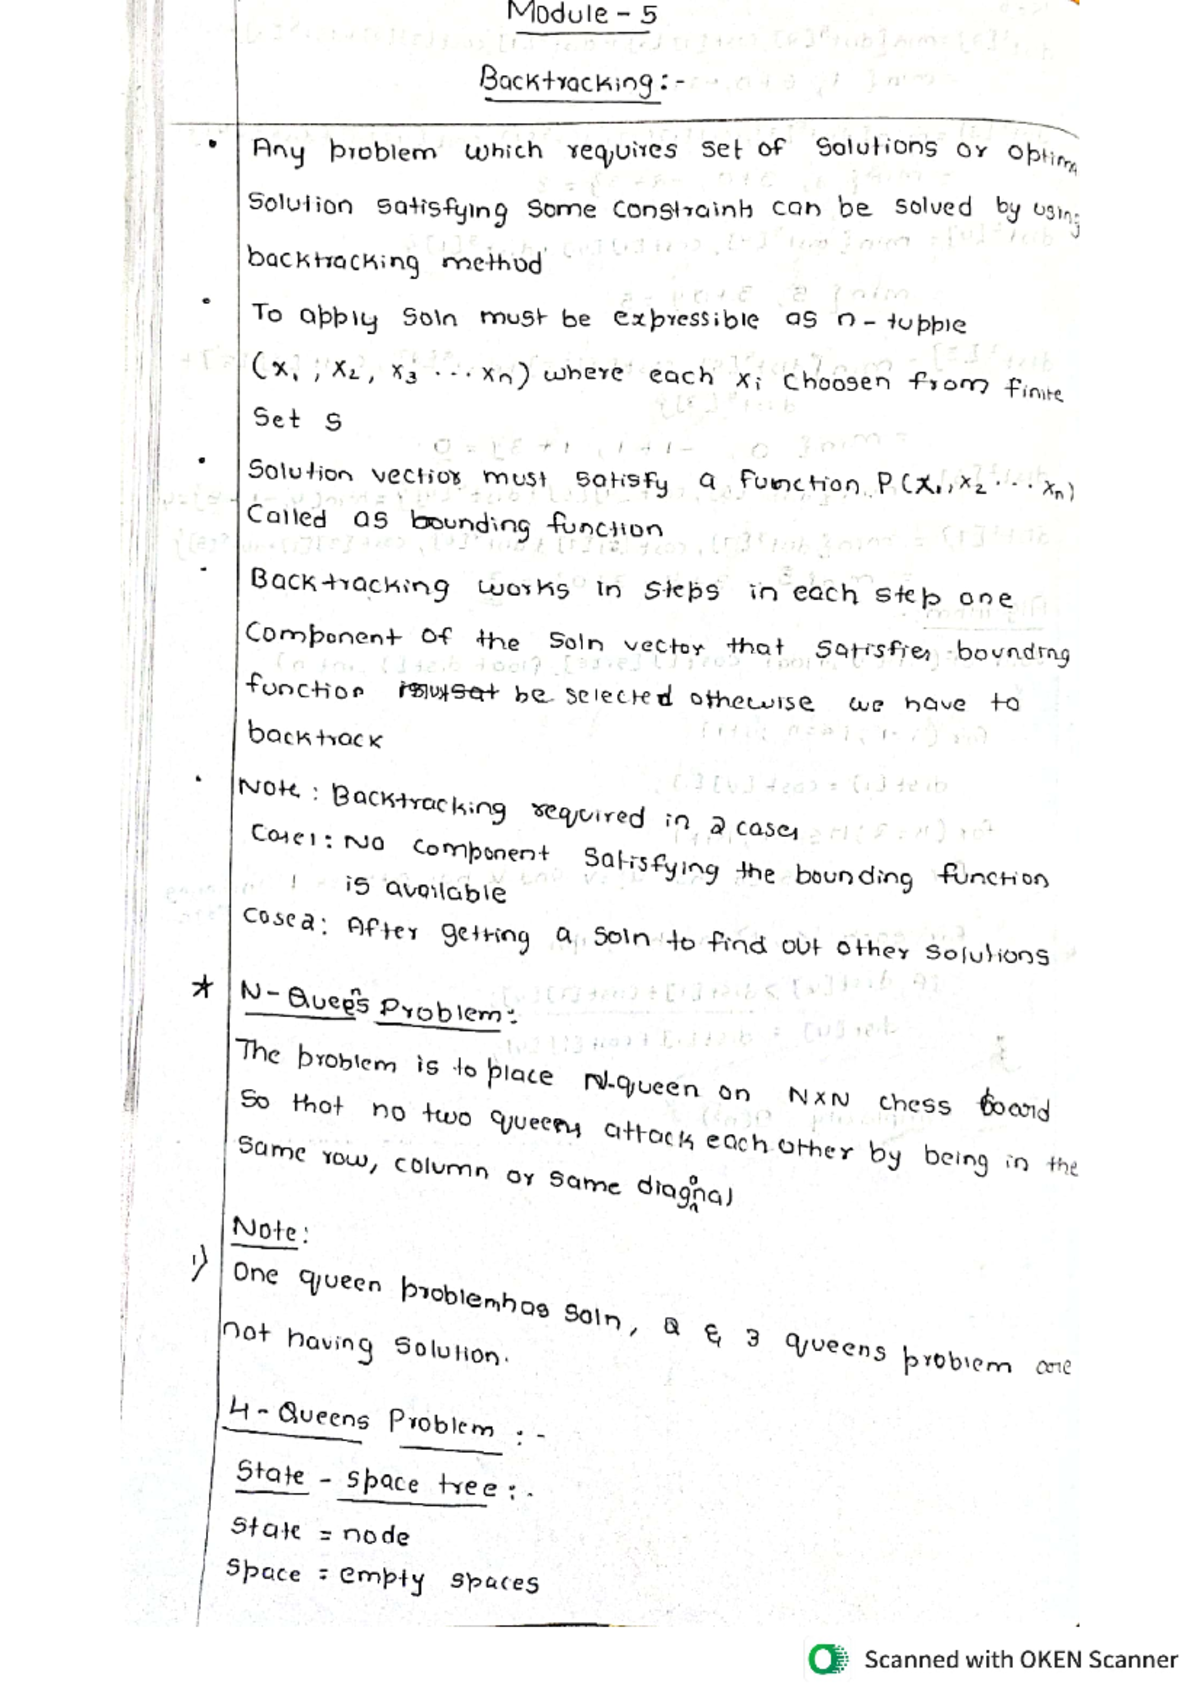 Module - 5
Backtracking :-
• Any problem which requires set of solutions or optima
solution satisfying some constraints can be solved by using
backtracking method
• To apply soln must be expressible as n-tupple
(x1, x2, x3 ... xn) where each xi choosen from finite
Set S
• Solution vectior must satisfy a function P(x1, x2 ... xn)
Called as bounding function
• Backtracking works in steps in each step one
Component of the soln vector that satisfies bounding
function be selected othewise we have to
backtrack
• Note : Backtracking required in 2 cases
Case1: No component satisfying the bounding function
is available
Case2: After getting a soln to find out other solutions
* N-Queens Problem:
The problem is to place N-queen on NxN chess board
So that no two queens attack each other by being in the
same row, column or same diagonal
Note:
1) One queen problem has soln, 2 & 3 queens problem are
not having solution.
4-Queens Problem :-
State - space tree :-
State = node
Space = empty spaces
Scanned with OKEN Scanner